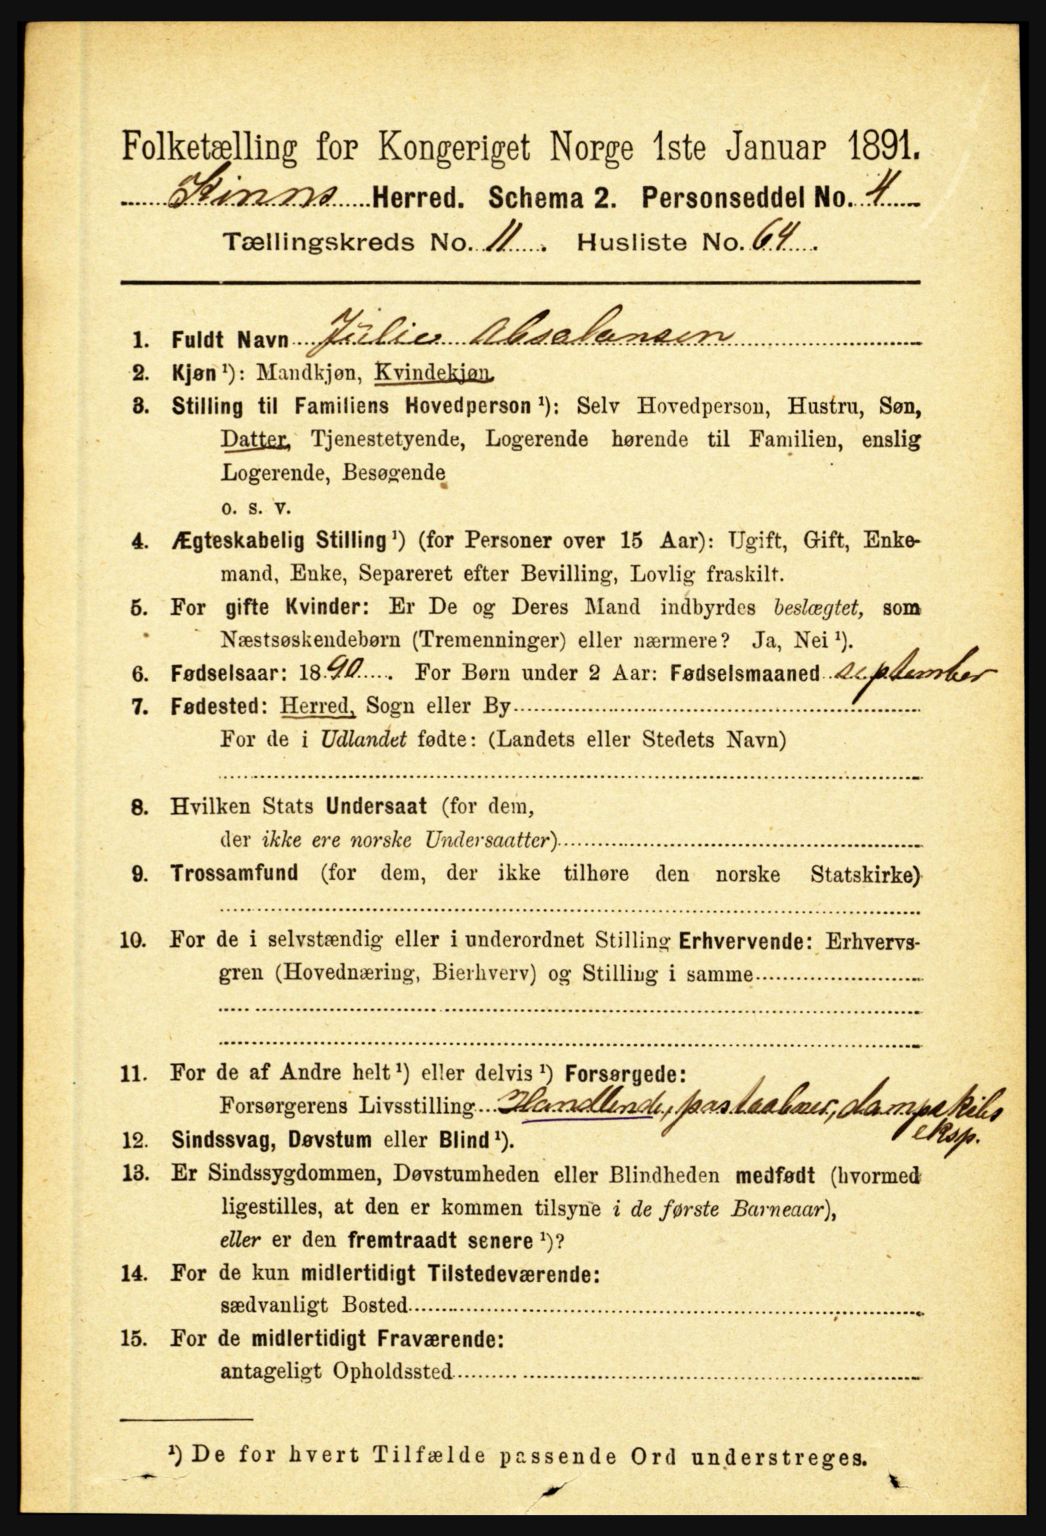 Folketælling for Kongeriget Norge 1ste Januar 1891.
Kinns Herred. Schema 2. Personseddel No. 4
Tællingskreds No. 11. Husliste No. 64.
1. Fuldt Navn Julie Absalonsen
2. Kjøn ¹): Mandkjøn, Kvindekjøn.
3. Stilling til Familiens Hovedperson ¹): Selv Hovedperson, Hustru, Søn,
Datter, Tjenestetyende, Logerende hørende til Familien, enslig
Logerende, Besøgende
o. s. v.
4. Ægteskabelig Stilling ¹) (for Personer over 15 Aar): Ugift, Gift, Enke-
mand, Enke, Separeret efter Bevilling, Lovlig fraskilt.
5. For gifte Kvinder: Er De og Deres Mand indbyrdes beslægtet, som
Næstsøskendebørn (Tremenninger) eller nærmere? Ja, Nei ¹).
6. Fødselsaar: 1890. For Børn under 2 Aar: Fødselsmaaned september
7. Fødested: Herred, Sogn eller By
For de i Udlandet fødte: (Landets eller Stedets Navn)
8. Hvilken Stats Undersaat (for dem,
der ikke ere norske Undersaatter)
9. Trossamfund (for dem, der ikke tilhøre den norske Statskirke)
10. For de i selvstændig eller i underordnet Stilling Erhvervende: Erhvervs-
gren (Hovednæring, Bierhverv) og Stilling i samme
11. For de af Andre helt ¹) eller delvis ¹) Forsørgede:
Forsørgerens Livsstilling Handlende, postaabner, dampskibs
eksp.
12. Sindssvag, Døvstum eller Blind ¹).
13. Er Sindssygdommen, Døvstumheden eller Blindheden medfødt (hvormed
ligestilles, at den er kommen tilsyne i de første Barneaar),
eller er den fremtraadt senere ¹)?
14. For de kun midlertidigt Tilstedeværende:
sædvanligt Bosted
15. For de midlertidigt Fraværende:
antageligt Opholdssted
¹) De for hvert Tilfælde passende Ord understreges.